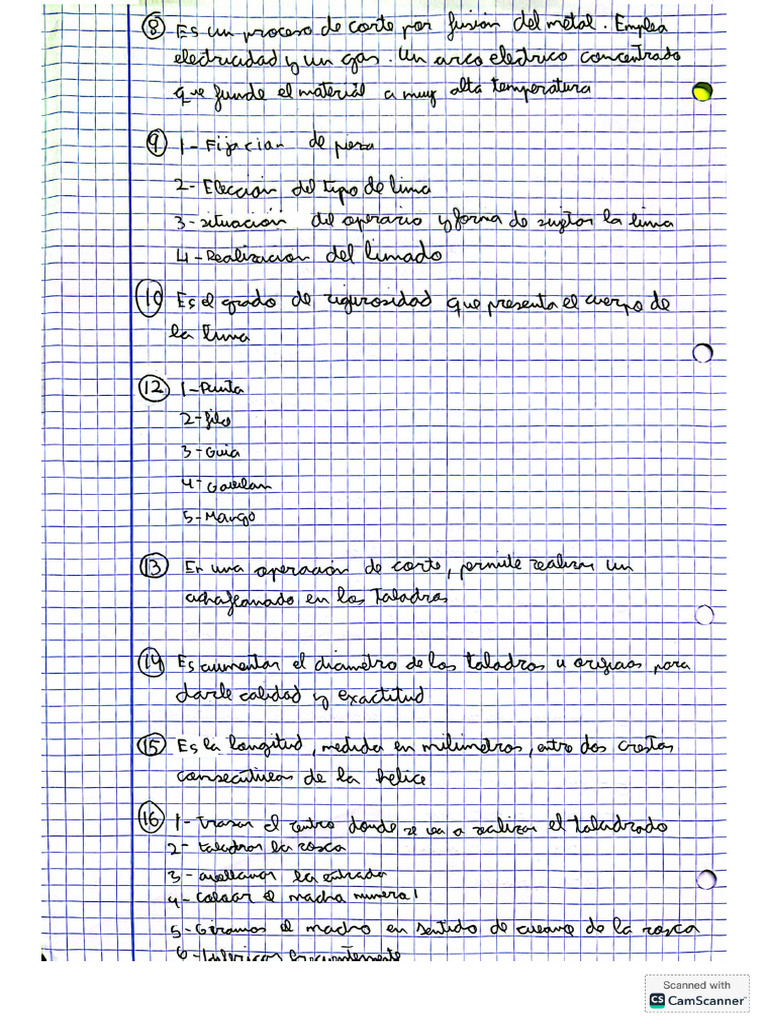 8 Es un proceso de corte por fusión del metal. Emplea
electricidad y un gas. Un arco electrico concentrado
que funde el material a muy alta temperatura
9 1- Fijacian de pieza
2- Elección del tipo de lima
3- situación del operario y forma de sujetar la lima
4- Realizacion del limado
10 Es el grado de rigurosidad que presenta el cuerpo de
la lima
12 1- Punta
2- filo
3- Guia
4- Gavilan
5- Mango
13 En una operación de corte, permite realizar un
achaflanado en los Taladros
14 Es aumentar el diametro de los taladros u orificios para
darle calidad y exactitud
15 Es la longitud, medida en milimetros, entre dos crestas
consecutivas de la helice
16 1- trazar el centro donde se va a realizar el taladrado
2- taladrar la rosca
3- avellanar la entrada
4- colocar el macho numero 1
5- Giramos el macho en sentido de avance de la rosca
6- Lubricar frecuentemente
Scanned with
CS CamScanner